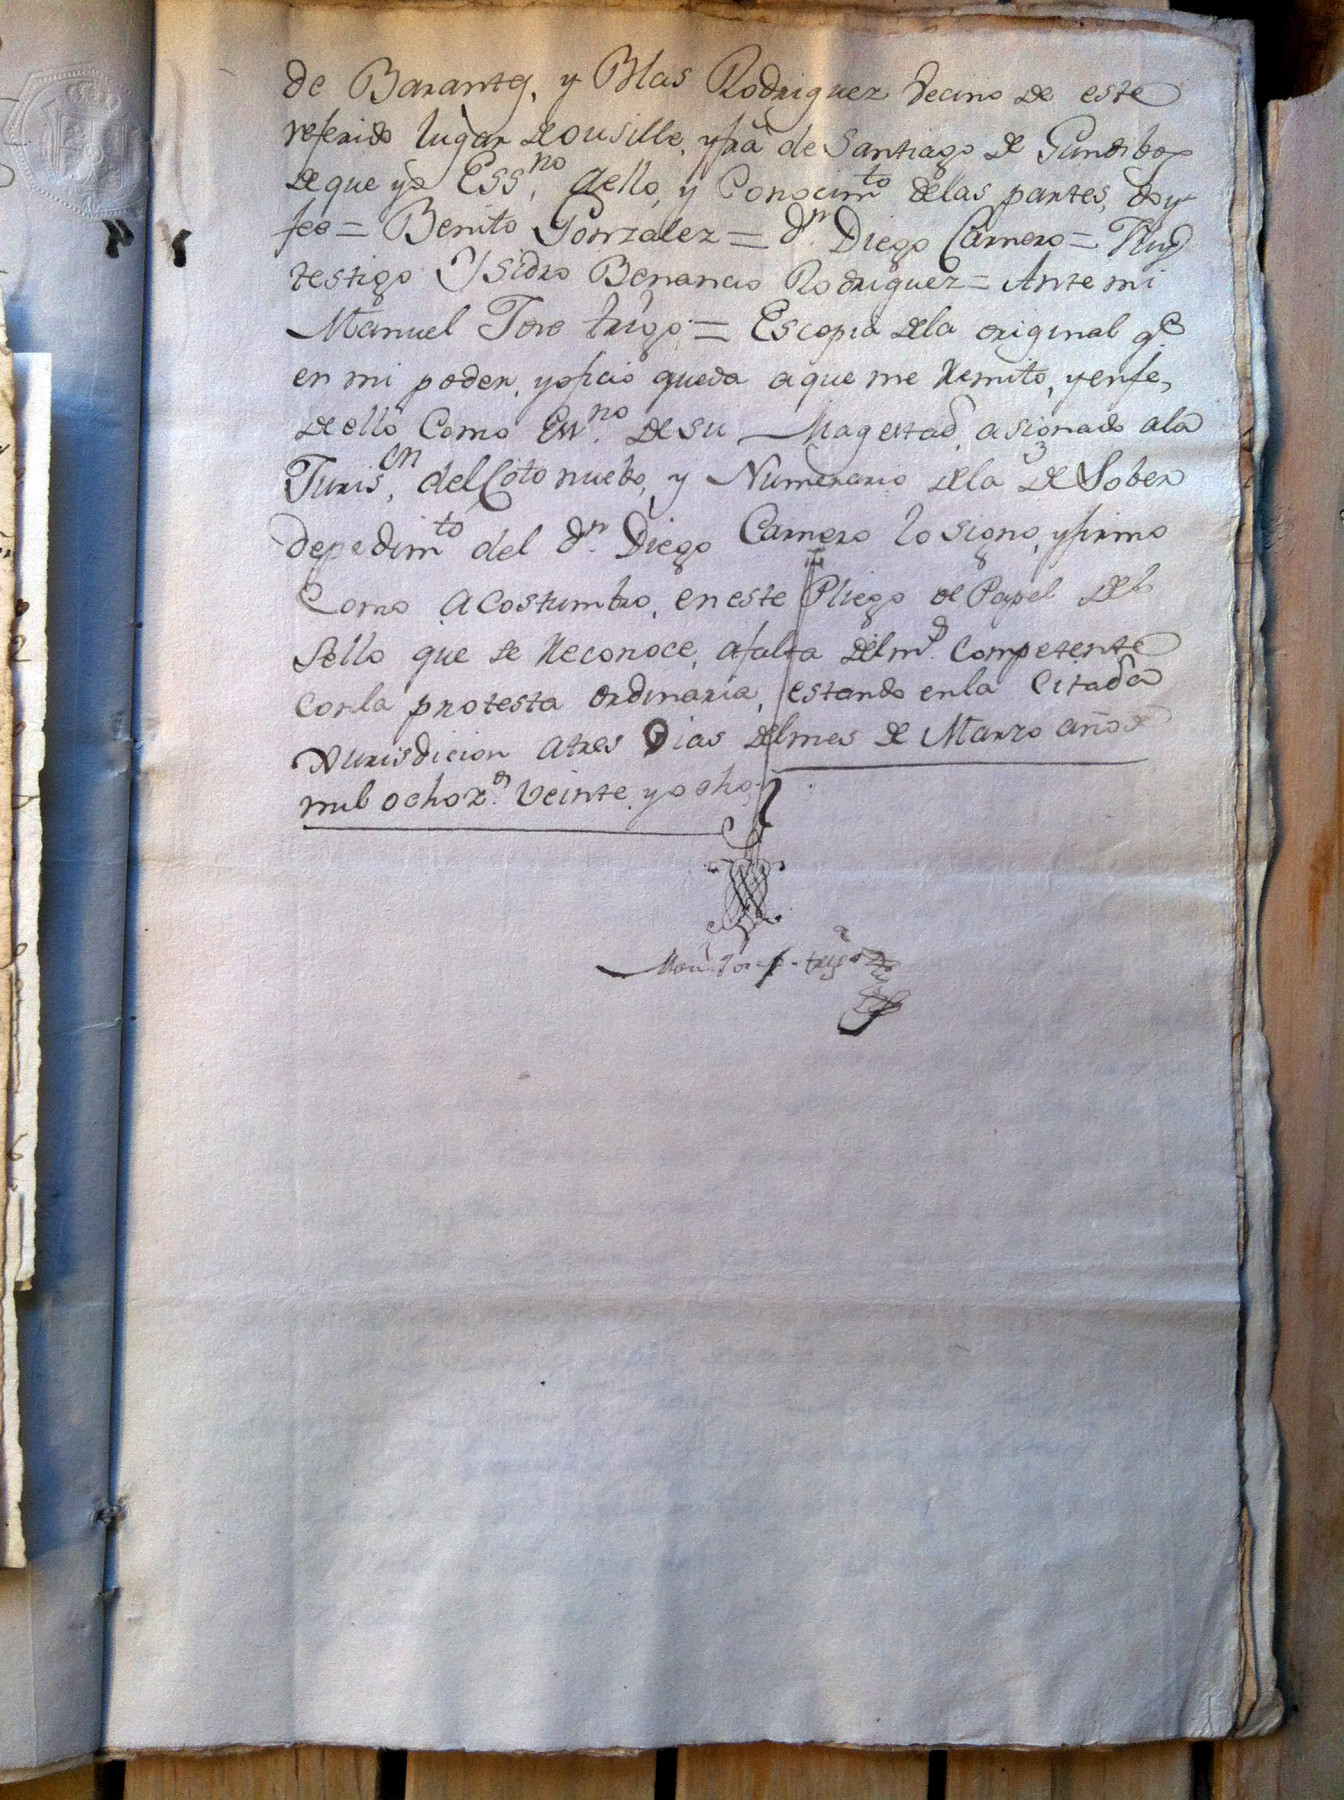 de Barantes, y Blas Rodriguez vecino de este
referido lugar de ousille, yfra de Santiago de Gundibos
de que yo Essno. dello, y Conocimto dellas partes, doy
fee = Benito Gonzalez = dn. Diego Carnero =
testigo Ysidro Benancio Rodriguez = Ante mi
Manuel Toro trigo = Es copia dela original qe
en mi poder, yoficio queda aque me Remito, yenfe,
de ello Como Essno. de su Magestad, asignado ala
Juriscn. del Coto nuebo, y Numerario dela de Sober
depedimto del dn. Diego Carnero lo signo, yfirmo
Como acostumbro, en este Pliego de Papel del
Sello que se Reconoce, afalta del Competente
conla protesta ordinaria, estando enla Citada
Xurisdicion atres Dias delmes de Marzo año de
mil ochozs. veinte y ocho
Manl. Toro trigo